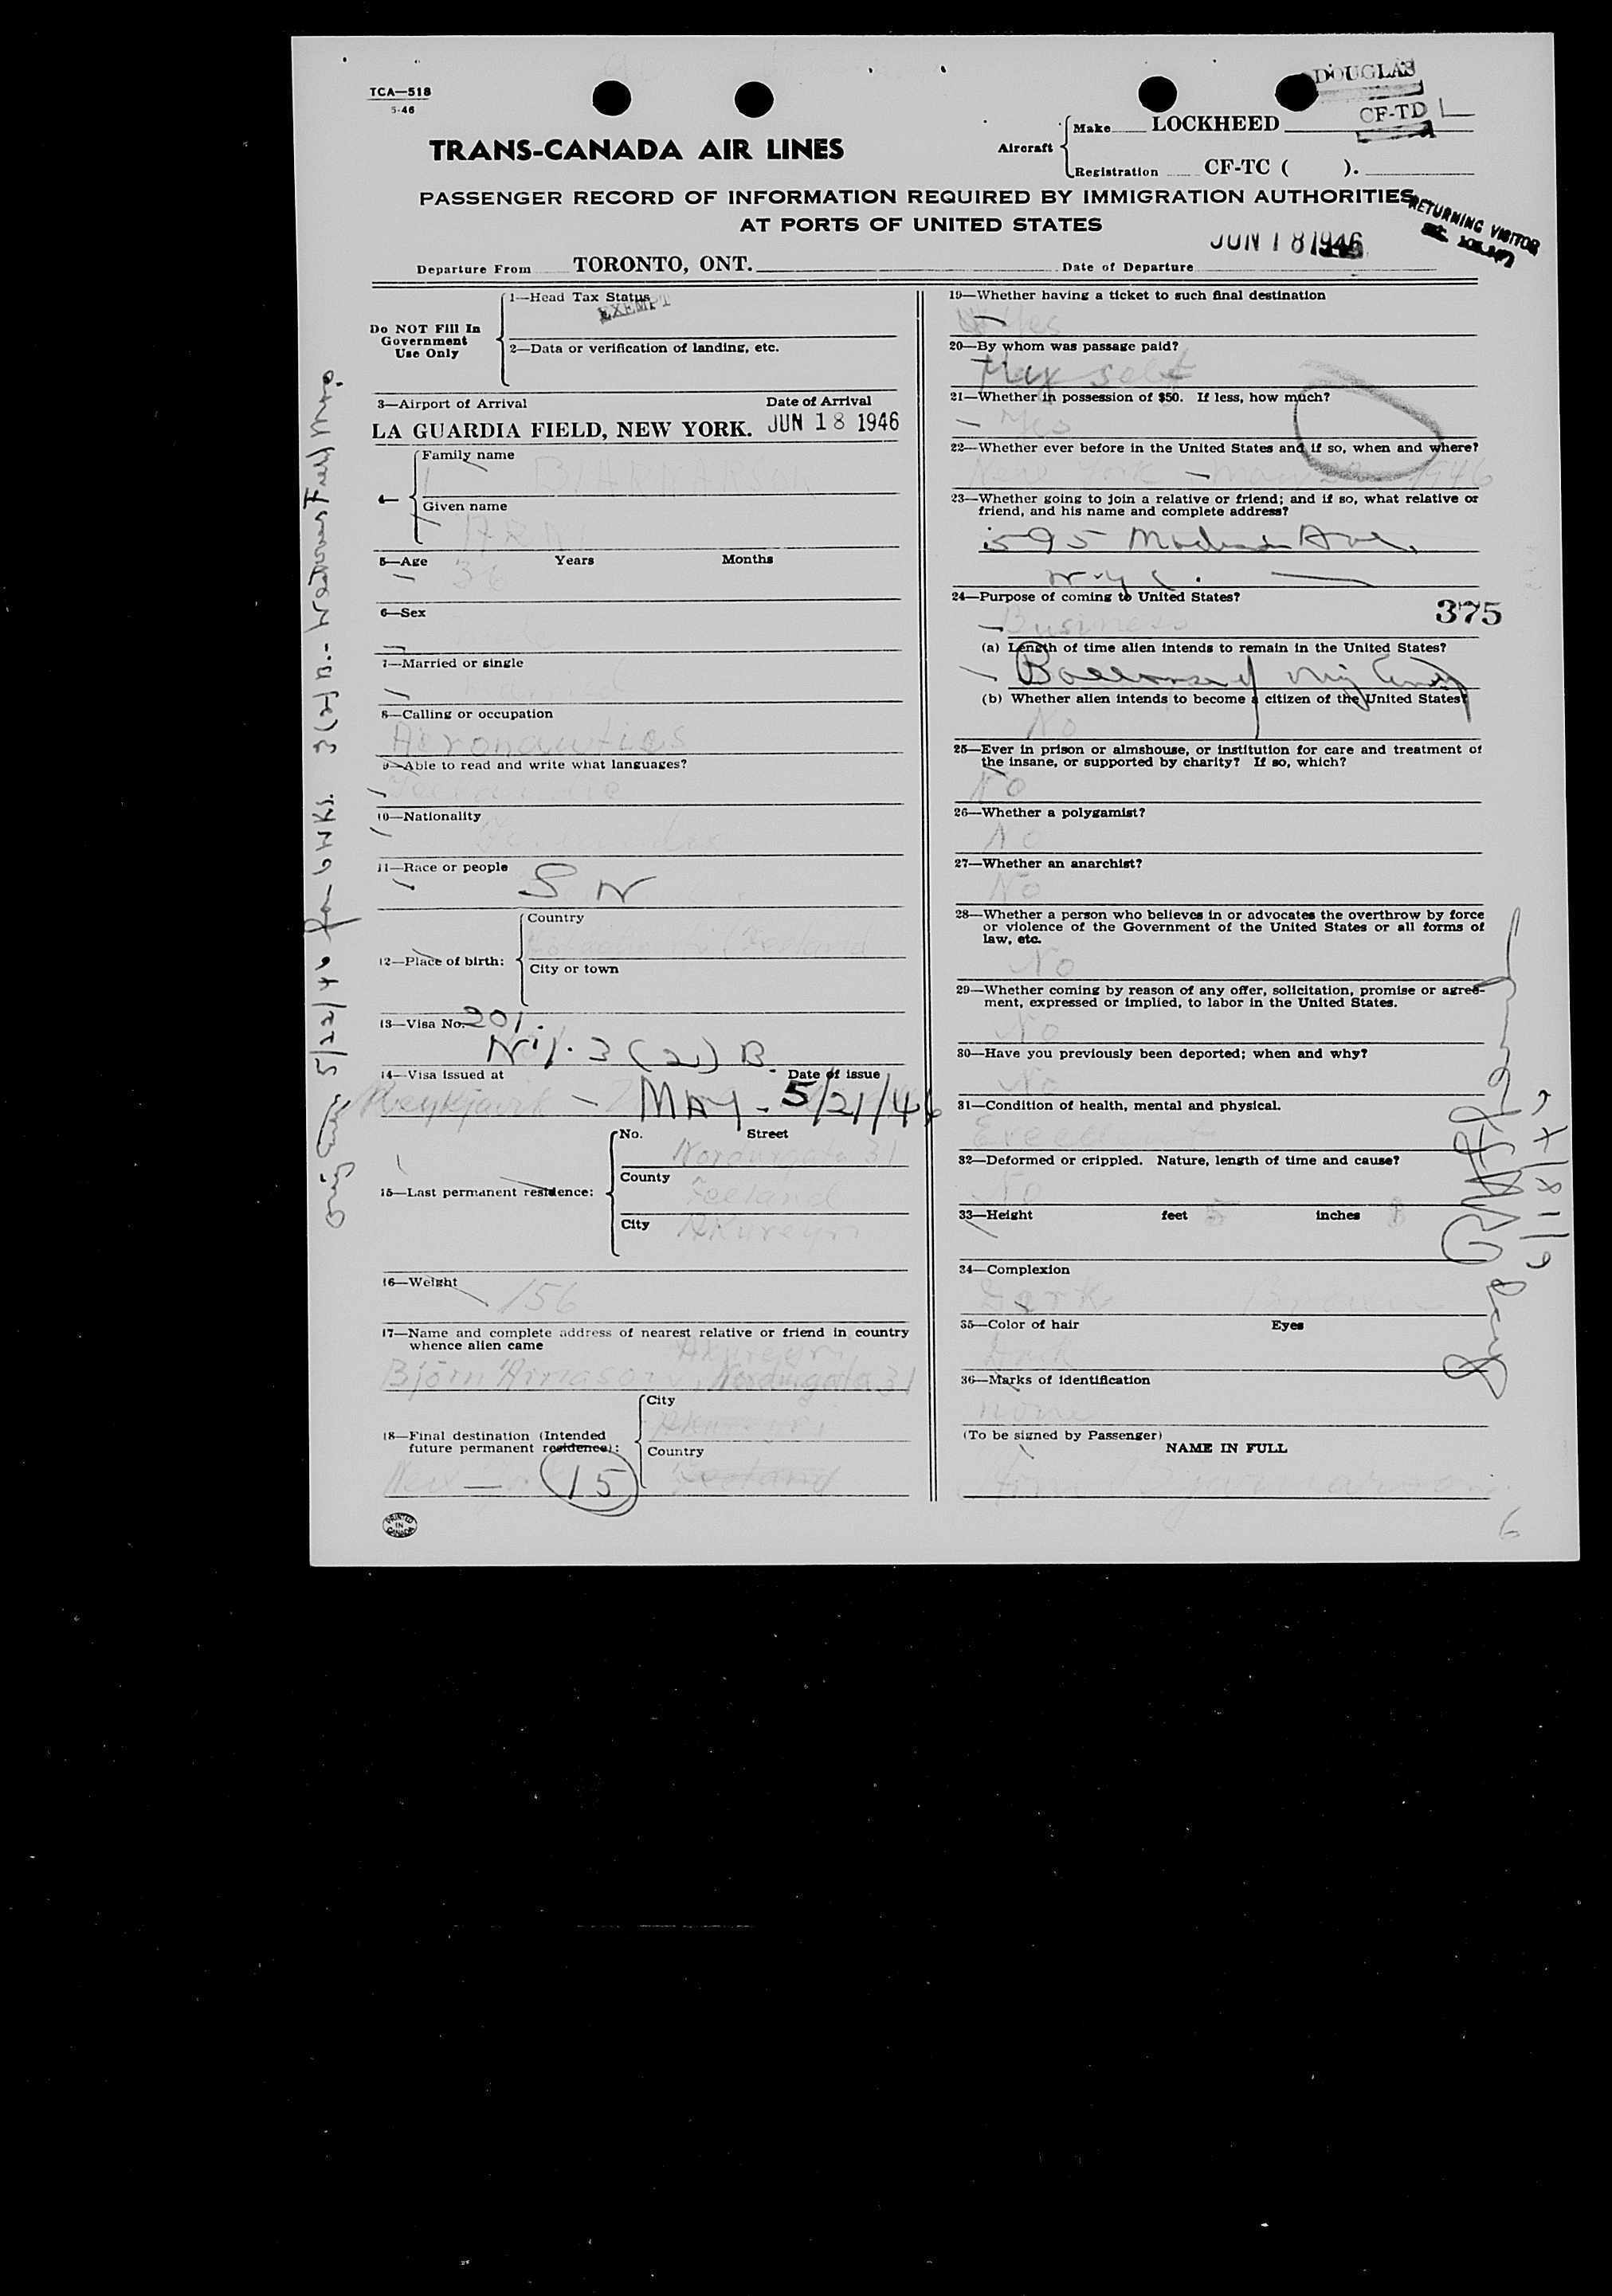 TCA—518
5-46
DOUGLAS
CF-TD L
TRANS-CANADA AIR LINES
Aircraft
Make LOCKHEED
Registration CF-TC ( ).
PASSENGER RECORD OF INFORMATION REQUIRED BY IMMIGRATION AUTHORITIES
AT PORTS OF UNITED STATES
RETURNING VISITOR
JUN 18 1946
Departure From TORONTO, ONT. Date of Departure
Do NOT Fill In
Government
Use Only
1—Head Tax Status
EXEMPT
2—Data or verification of landing, etc.
3—Airport of Arrival Date of Arrival
LA GUARDIA FIELD, NEW YORK. JUN 18 1946
4—
Family name
Given name
5—Age Years Months
36
6—Sex
7—Married or single
8—Calling or occupation
Aeronautics
9—Able to read and write what languages?
10—Nationality
11—Race or people
S N
12—Place of birth:
Country
City or town
13—Visa No. 201.
Ni/. 3 (2) B
14—Visa issued at Date of issue
Reykjavik – MAY - 5/21/46
15—Last permanent residence:
No. Street
Nordurgata 31
County
Iceland
City
Akureyri
16—Weight
156
17—Name and complete address of nearest relative or friend in country
whence alien came
Akureyri
Björn Arnason, Nordurgata 31
18—Final destination (Intended
future permanent residence):
City
Akureyri
Country
Iceland
New 15
PRINTED IN CANADA
19—Whether having a ticket to such final destination
Yes
20—By whom was passage paid?
My self
21—Whether in possession of $50. If less, how much?
Yes
22—Whether ever before in the United States and if so, when and where?
New York – May 1946
23—Whether going to join a relative or friend; and if so, what relative or
friend, and his name and complete address?
595 Madison Ave.
N.Y.C.
24—Purpose of coming to United States?
375
Business
(a) Length of time alien intends to remain in the United States?
Balance of
(b) Whether alien intends to become a citizen of the United States?
No
25—Ever in prison or almshouse, or institution for care and treatment of
the insane, or supported by charity? If so, which?
No
26—Whether a polygamist?
No
27—Whether an anarchist?
No
28—Whether a person who believes in or advocates the overthrow by force
or violence of the Government of the United States or all forms of
law, etc.
No
29—Whether coming by reason of any offer, solicitation, promise or agree-
ment, expressed or implied, to labor in the United States.
No
30—Have you previously been deported; when and why?
No
31—Condition of health, mental and physical.
Excellent
32—Deformed or crippled. Nature, length of time and cause?
No
33—Height feet 5 inches 8
34—Complexion
Dark Brown
35—Color of hair Eyes
Dark
36—Marks of identification
none
(To be signed by Passenger)
NAME IN FULL
6
5/22/46 for 6 wks. 3(2) B.-
6/18/